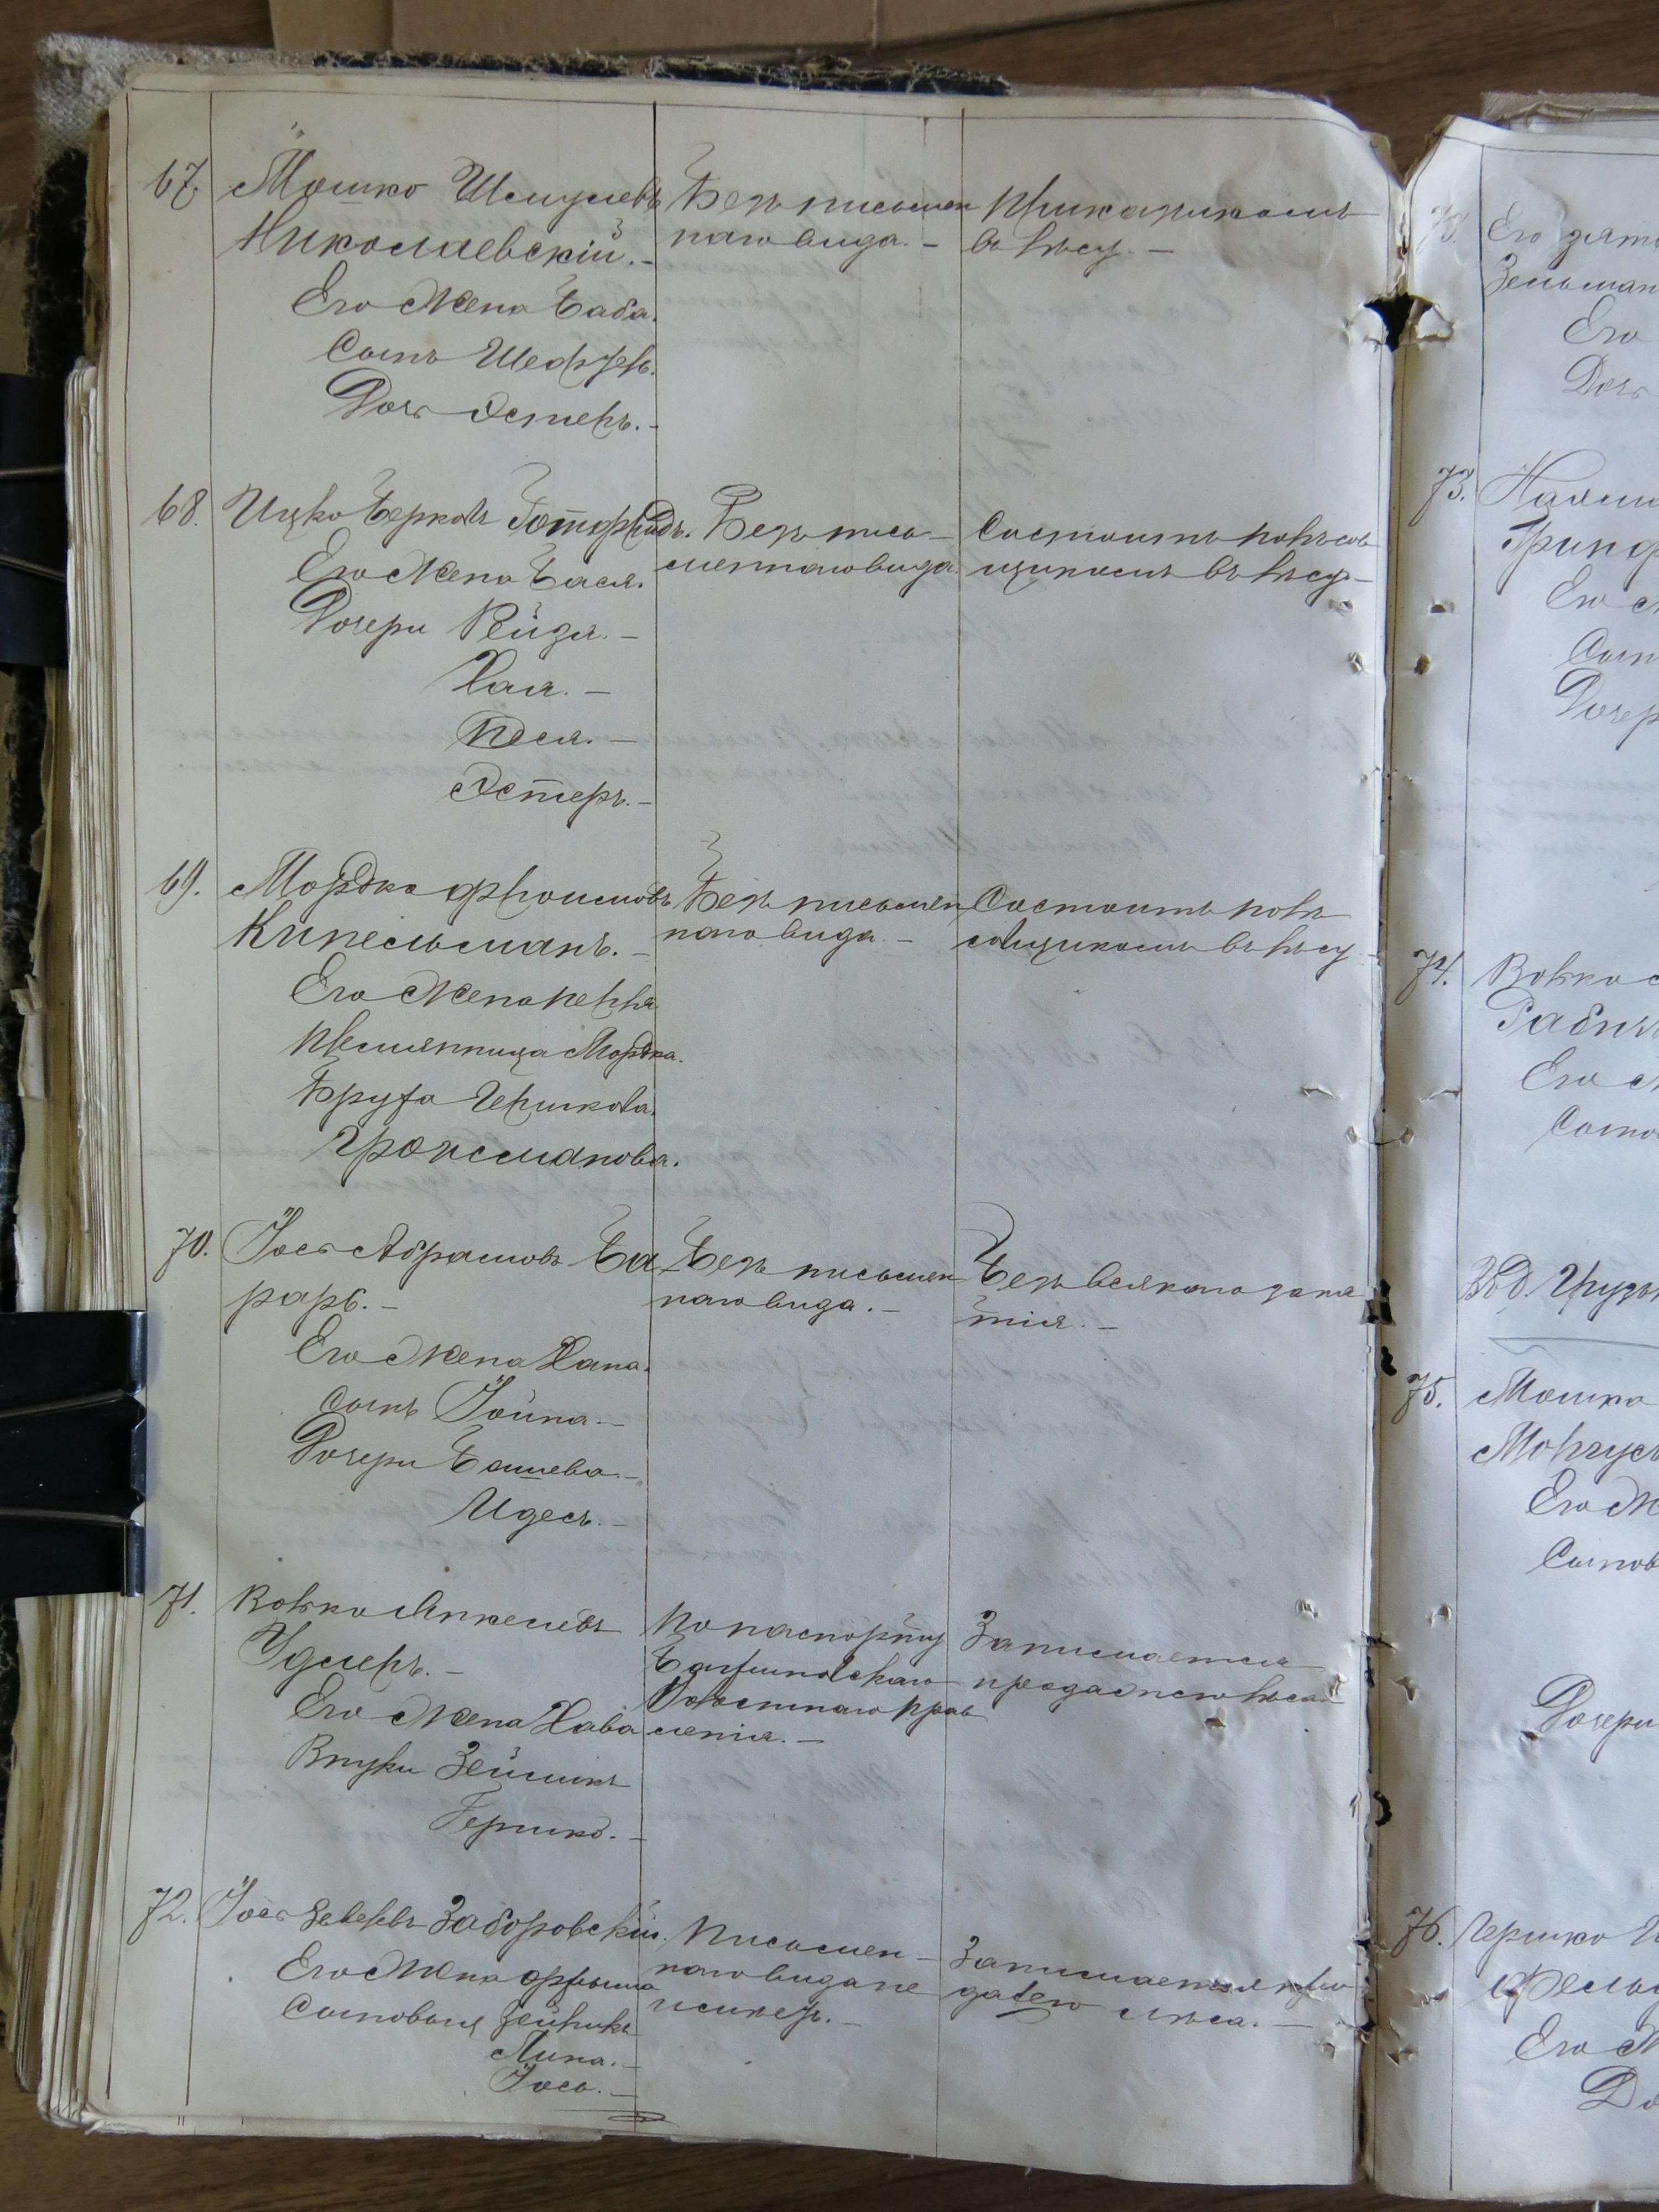 67. Мошко Шмулевъ
Николаевскій. -
Его Жена Баба.
Сынъ
Дочь Эстеръ. -
Безъ письмен
наго вида. -
Прикащикомъ
въ лѣсу. -
68. Ицко Берковъ Готфридъ.
Его Жена Бася.
Дочери Рейзя. -
Хая. -
Песя. -
Эстеръ. -
Безъ пись-
меннаго вида.
Состоитъ полѣсов
щикомъ въ лѣсу -
69. Мордко Фроимовъ
Кипельманъ. -
Его Жена Перля
Племянница Мордка.
Бруха Гершкова.
Гройсманова.
Безъ письмен
наго вида -
Состоитъ полѣ
совщикомъ въ лѣсу -
70. Іось Абрамовъ Ба
раръ. -
Его Жена Хана.
Сынъ Іойна. -
Дочери Башева. -
Идесъ. -
Безъ письмен
наго вида. -
Безъ всякаго заня
тія. -
71. Волько Янкелевъ
Удлеръ. -
Его Жена Хава
Внуки Зейликъ
Гершко. -
По паспорту
Волостнаго Прав
ленія. -
Занимается
продажею лѣса. -
72. Іось Заборовскій.
Его Жена Фрыма
Сыновья
Липа. -
Іось. -
Письмен-
наго вида не
имѣетъ. -
Занимается про
дажею лѣса. -
73. Его зять
Зельман
Его
Дочь
73.
Его
Сын
Дочер
74. Волько
Его
Сынов
75. Мошко
Его Ж
Сынов
Дочери
76. Гершко
Его Ж
До